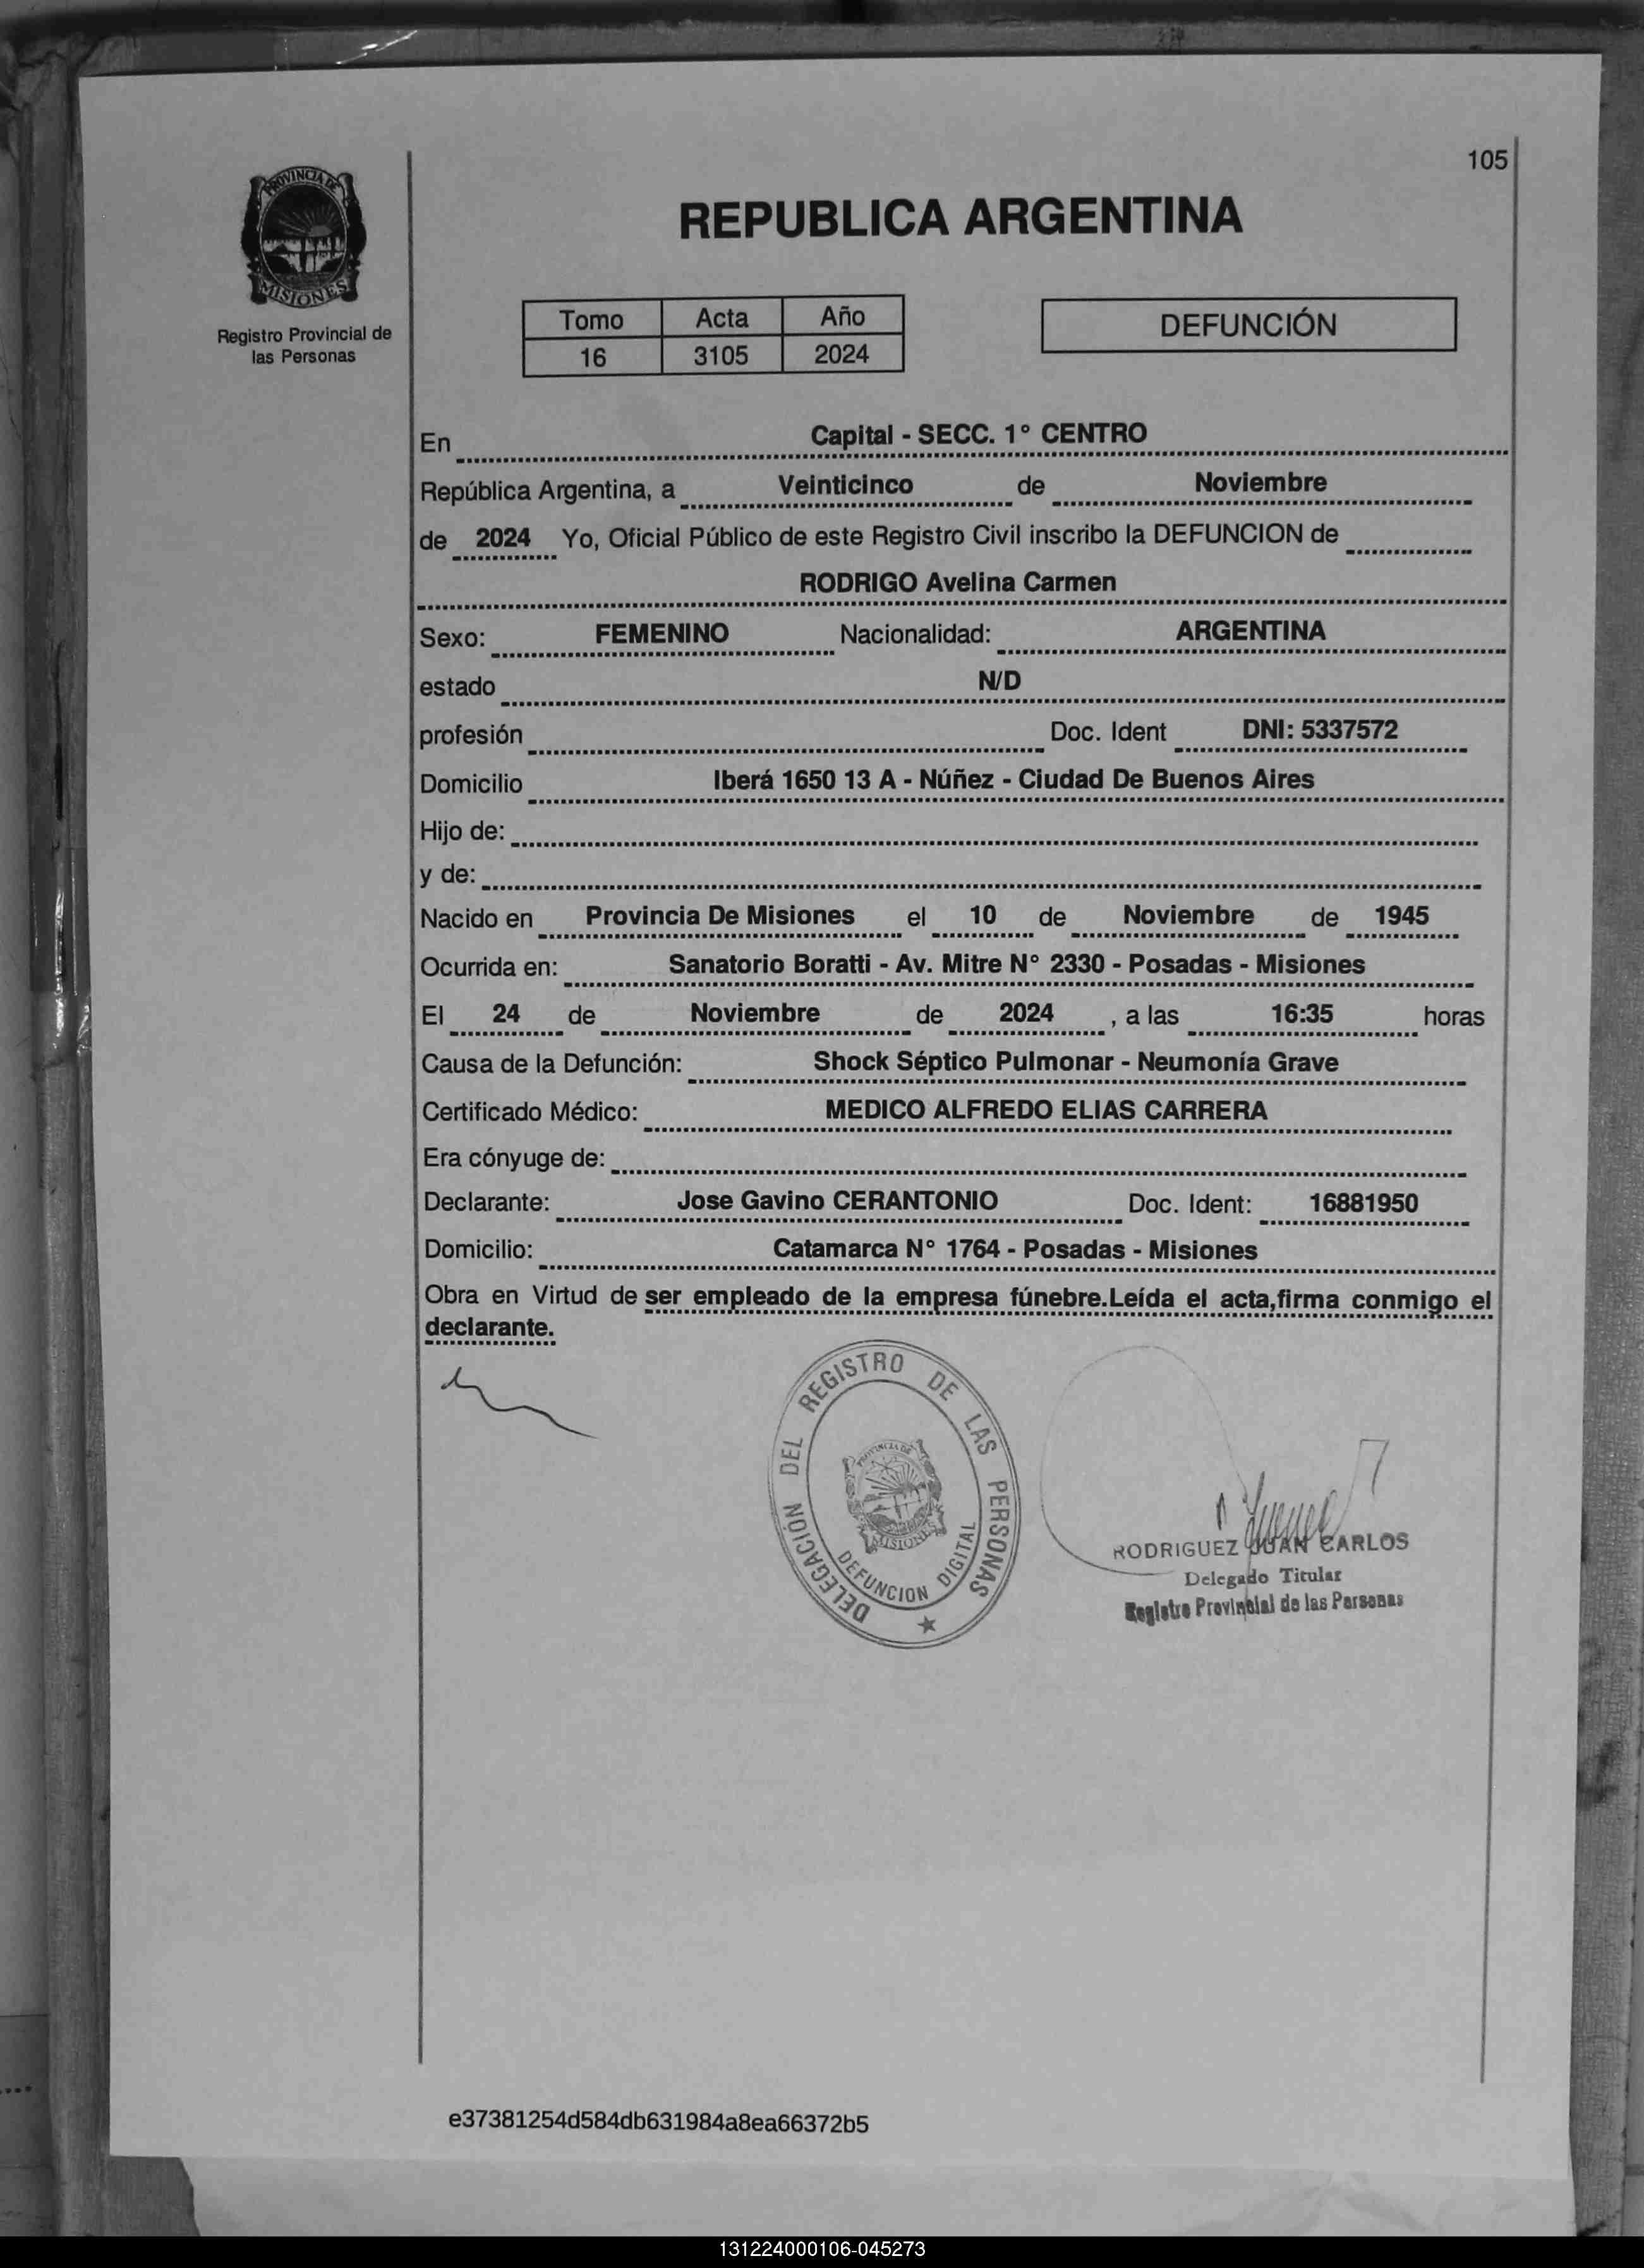 105
PROVINCIA DE
MISIONES
Registro Provincial de
las Personas
REPUBLICA ARGENTINA
Tomo Acta Año
16 3105 2024
DEFUNCIÓN
En Capital - SECC. 1° CENTRO
República Argentina, a Veinticinco de Noviembre
de 2024 Yo, Oficial Público de este Registro Civil inscribo la DEFUNCION de
RODRIGO Avelina Carmen
Sexo: FEMENINO Nacionalidad: ARGENTINA
estado N/D
profesión Doc. Ident DNI: 5337572
Domicilio Iberá 1650 13 A - Núñez - Ciudad De Buenos Aires
Hijo de:
y de:
Nacido en Provincia De Misiones el 10 de Noviembre de 1945
Ocurrida en: Sanatorio Boratti - Av. Mitre N° 2330 - Posadas - Misiones
El 24 de Noviembre de 2024 , a las 16:35 horas
Causa de la Defunción: Shock Séptico Pulmonar - Neumonía Grave
Certificado Médico: MEDICO ALFREDO ELIAS CARRERA
Era cónyuge de:
Declarante: Jose Gavino CERANTONIO Doc. Ident: 16881950
Domicilio: Catamarca N° 1764 - Posadas - Misiones
Obra en Virtud de ser empleado de la empresa fúnebre.Leída el acta,firma conmigo el
declarante.
DELEGACION DEL REGISTRO DE LAS PERSONAS
PROVINCIA DE
MISIONES
DEFUNCION DIGITAL
RODRIGUEZ JUAN CARLOS
Delegado Titular
Registro Provincial de las Personas
e37381254d584db631984a8ea66372b5
131224000106-045273